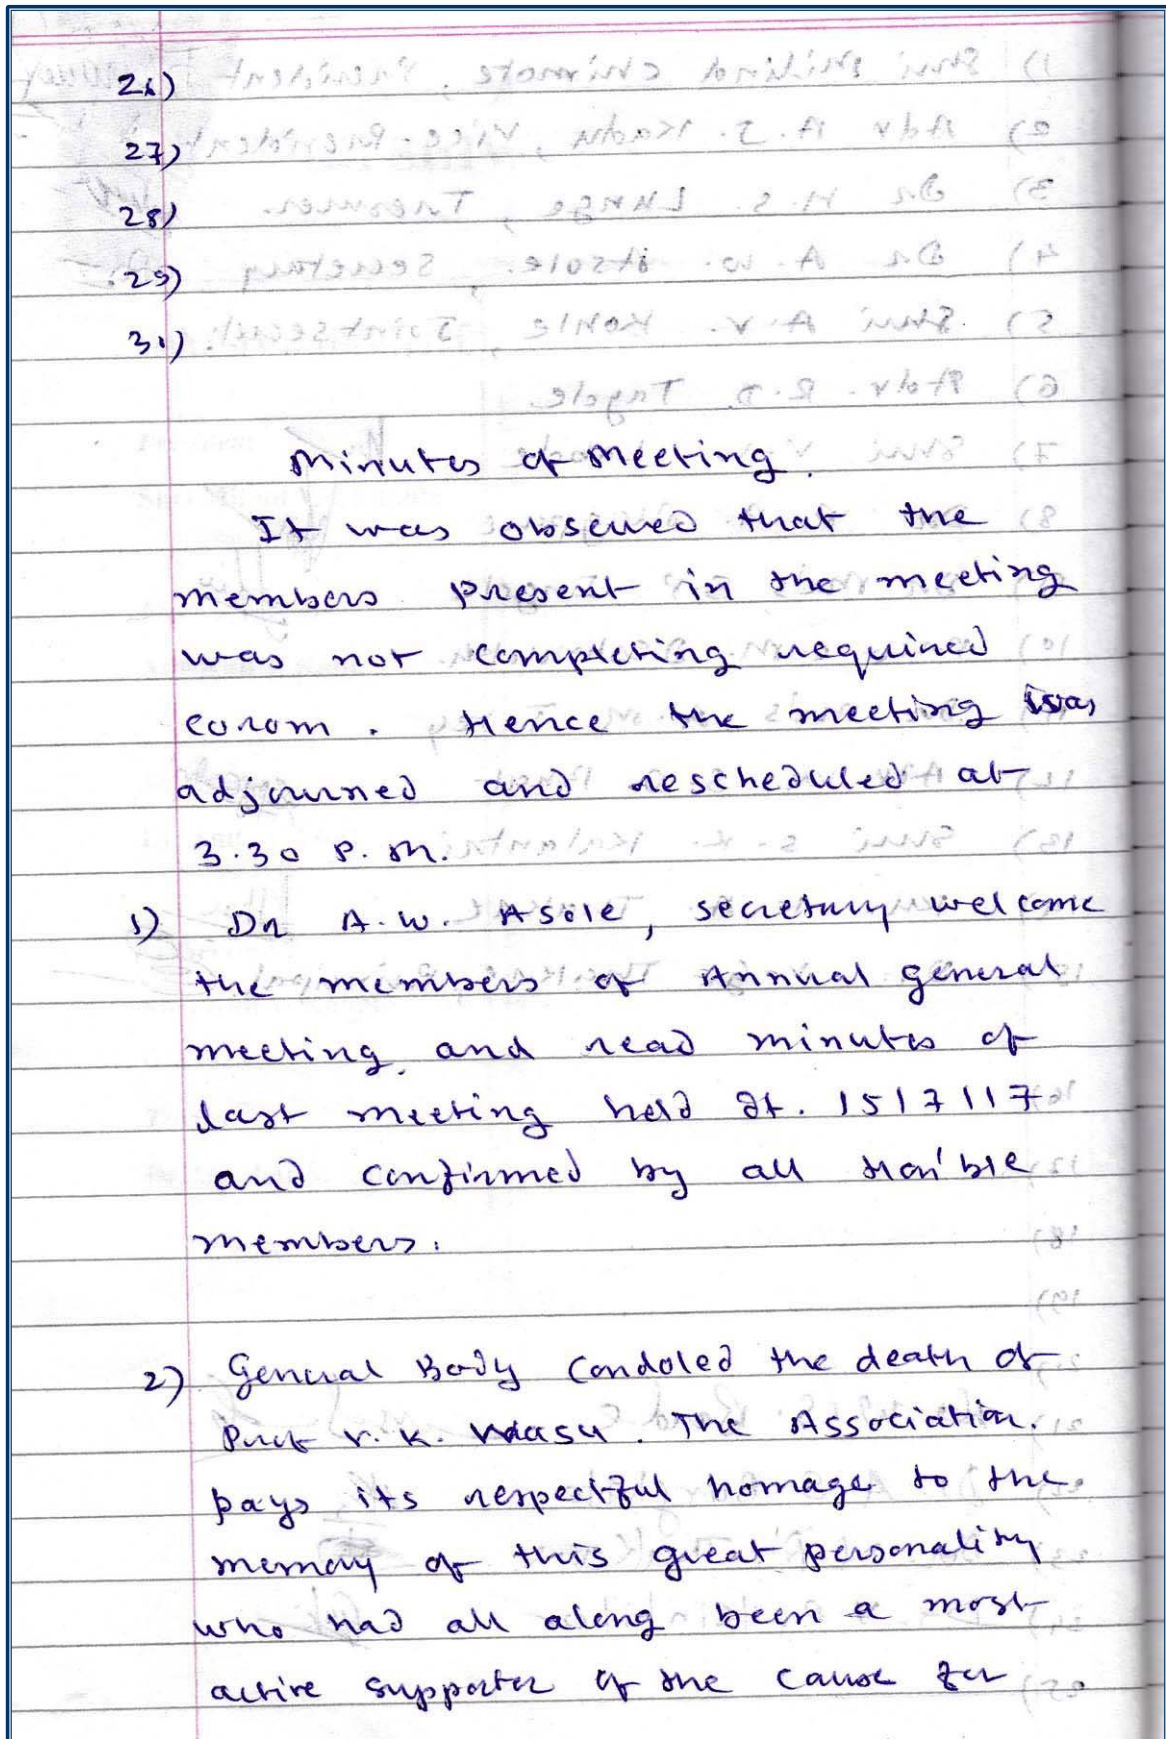 26)
27)
28)
29)
30)
Minutes of Meeting.
It was observed that the
members present in the meeting
was not completing required
corom. Hence the meeting was
adjourned and rescheduled at
3.30 P.M.
1) Dr A.W. Asole, secretary welcome
the members of Annual general
meeting, and read minutes of
last meeting held dt. 15/7/17
and confirmed by all Hon'ble
members.
2) General Body Condoled the death of
Prof V.K. The Association.
pays its respectful homage to the
memory of this great personality
who had all along been a most
active supporter of the cause for